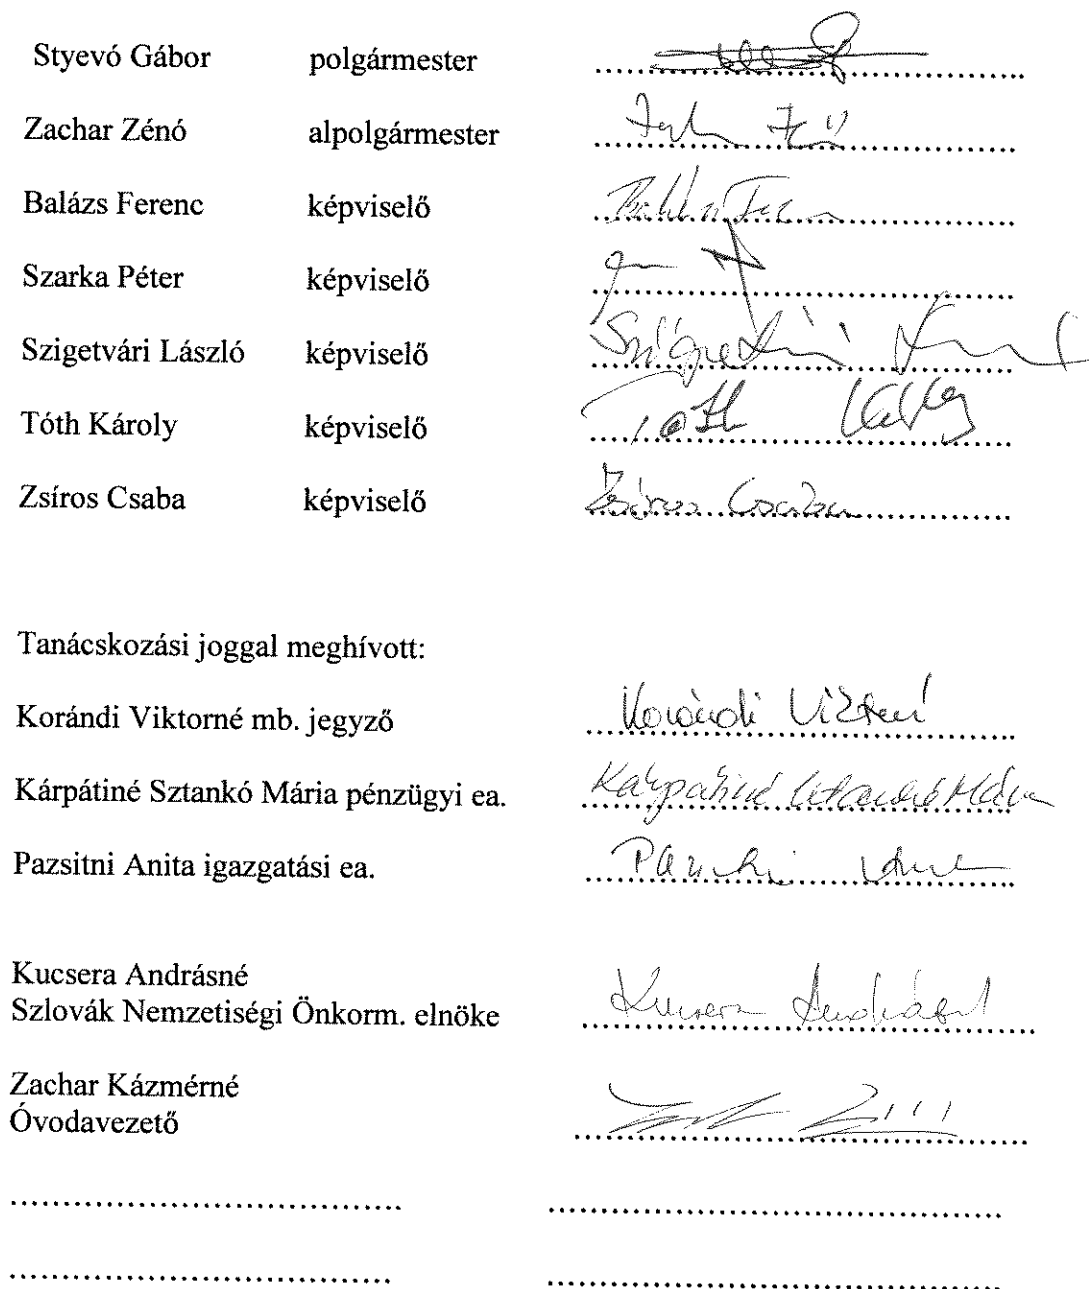 Styevó Gábor polgármester
Zachar Zénó alpolgármester
Balázs Ferenc képviselő
Szarka Péter képviselő
Szigetvári László képviselő Szigetvári
Tóth Károly képviselő Tóth Károly
Zsíros Csaba képviselő Zsíros Csaba
Tanácskozási joggal meghívott:
Korándi Viktorné mb. jegyző Korándi Viktorné
Kárpátiné Sztankó Mária pénzügyi ea. Kárpátiné Sztankó Mária
Pazsitni Anita igazgatási ea.
Kucsera Andrásné
Szlovák Nemzetiségi Önkorm. elnöke Kucsera Andrásné
Zachar Kázmérné
Óvodavezető